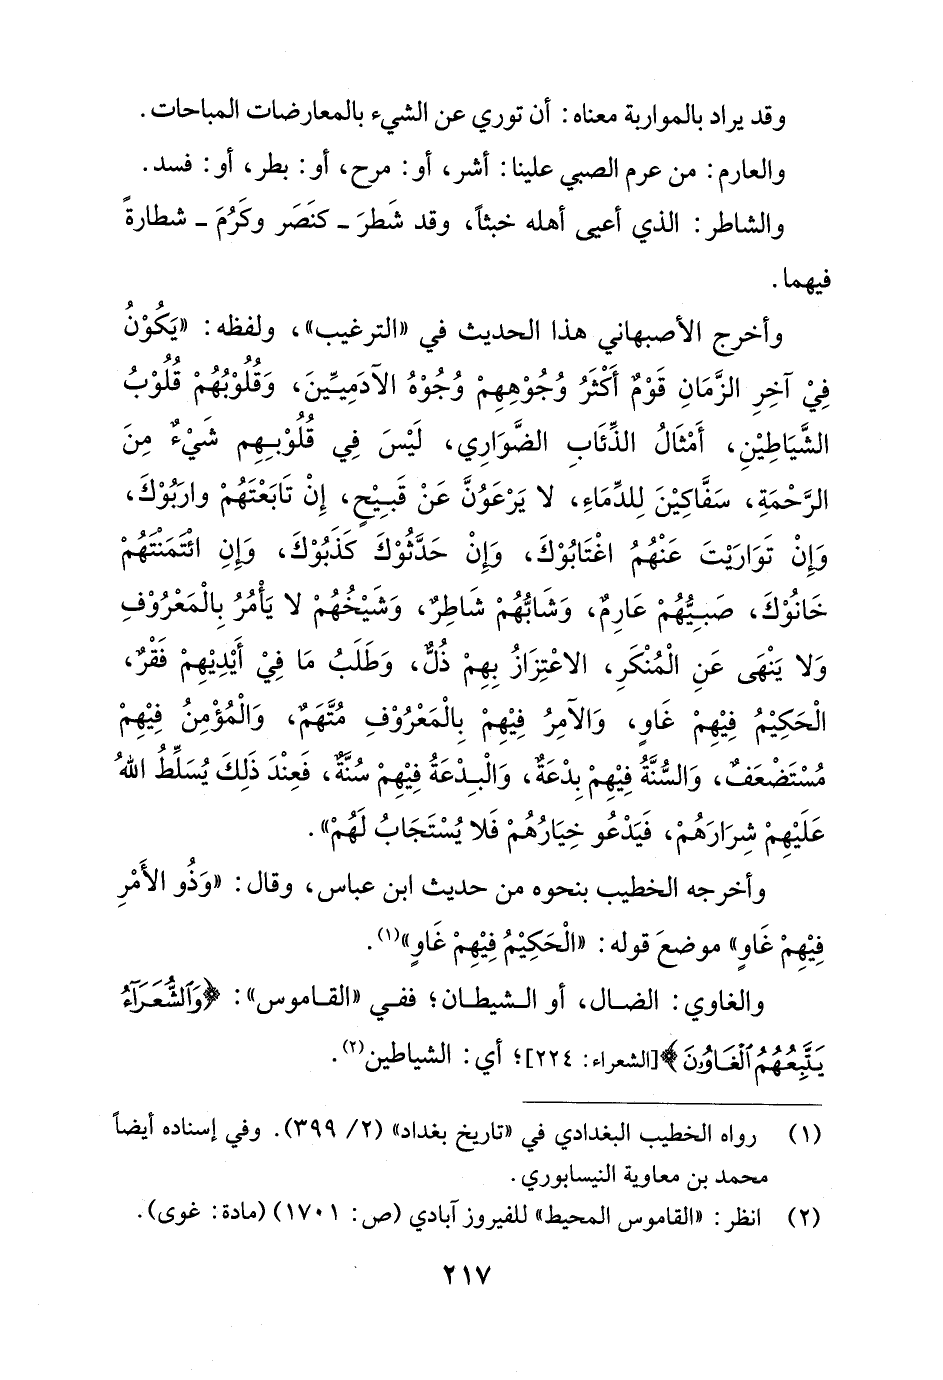 وقد يراد بالمواربة معناه: أن توري عن الشيء بالمعارضات المباحات.
والعارم: من عرم الصبي علينا: أشر، أو: مرح، أو: بطر، أو: فسد.
والشاطر: الذي أعيى أهله خبثاً، وقد شَطرَ ـ كنَصَر وكَرُمَ ـ شطارةً
فيهما.
وأخرج الأصبهاني هذا الحديث في «الترغيب»، ولفظه: «يَكُوْنُ
فِيْ آخِرِ الزَّمَانِ قَوْمٌ أَكْثَرُ وُجُوْهِهِمْ وُجُوْهُ الآدَمِيِّينَ، وَقُلُوْبُهُمْ قُلُوْبُ
الشَّيَاطِيْنِ، أَمْثَالُ الذِّئَابِ الضَّوَارِي، لَيْسَ فِي قُلُوْبِهِم شَيْءٌ مِنَ
الرَّحْمَةِ، سَفَّاكِيْنَ لِلدِّمَاءِ، لا يَرْعَوُنَّ عَنْ قَبِيْحٍ، إِنْ تَابَعْتَهُمْ وارَبُوْكَ،
وَإِنْ تَوَارَيْتَ عَنْهُمُ اغْتَابُوْكَ، وَإِنْ حَدَّثُوْكَ كَذَبُوْكَ، وَإِنِ ائْتَمَنْتَهُمْ
خَانُوْكَ، صَبِيُّهُمْ عَارِمٌ، وَشَابُّهُمْ شَاطِرٌ، وَشَيْخُهُمْ لا يَأْمُرُ بِالْمَعْرُوْفِ
وَلا يَنْهَى عَنِ الْمُنْكَرِ، الاعْتِزَازُ بِهِمْ ذُلٌّ، وَطَلَبُ مَا فِيْ أَيْدِيْهِمْ فَقْرٌ،
الْحَكِيْمُ فِيْهِمْ غَاوٍ، وَالآمِرُ فِيْهِمْ بِالْمَعْرُوْفِ مُتَّهَمٌ، وَالْمُؤْمِنُ فِيْهِمْ
مُسْتَضْعَفٌ، وَالسُّنَّةُ فِيْهِمْ بِدْعَةٌ، وَالْبِدْعَةُ فِيْهِمْ سُنَّةٌ، فَعِنْدَ ذَلِكَ يُسَلِّطُ اللهُ
عَلَيْهِمْ شِرَارَهُمْ، فَيَدْعُو خِيَارُهُمْ فَلا يُسْتَجَابُ لَهُمْ».
وأخرجه الخطيب بنحوه من حديث ابن عباس، وقال: «وَذُو الأَمْرِ
فِيْهِمْ غَاوٍ» موضعَ قوله: «الْحَكِيْمُ فِيْهِمْ غَاوٍ»(١).
والغاوي: الضال، أو الشيطان؛ ففي «القاموس»: ﴿وَٱلشُّعَرَآءُ
يَتَّبِعُهُمُ ٱلْغَاوُۥنَ﴾[الشعراء: ٢٢٤]؛ أي: الشياطين(٢).
(١) رواه الخطيب البغدادي في «تاريخ بغداد» (٢/ ٣٩٩). وفي إسناده أيضاً
محمد بن معاوية النيسابوري.
(٢) انظر: «القاموس المحيط» للفيروز آبادي (ص: ١٧٠١) (مادة: غوى).
٢١٧